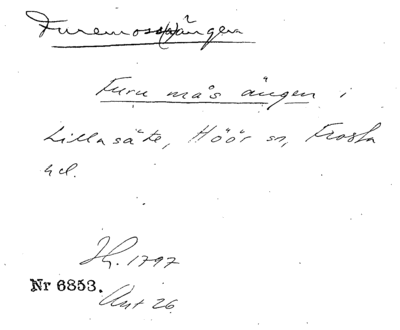 Furemoss(e)ängen
Furu mås ängen i
Lilla säte, Höör sn, Frosta
hd.
Jb. 1797
Nr 6853.
Akt 26